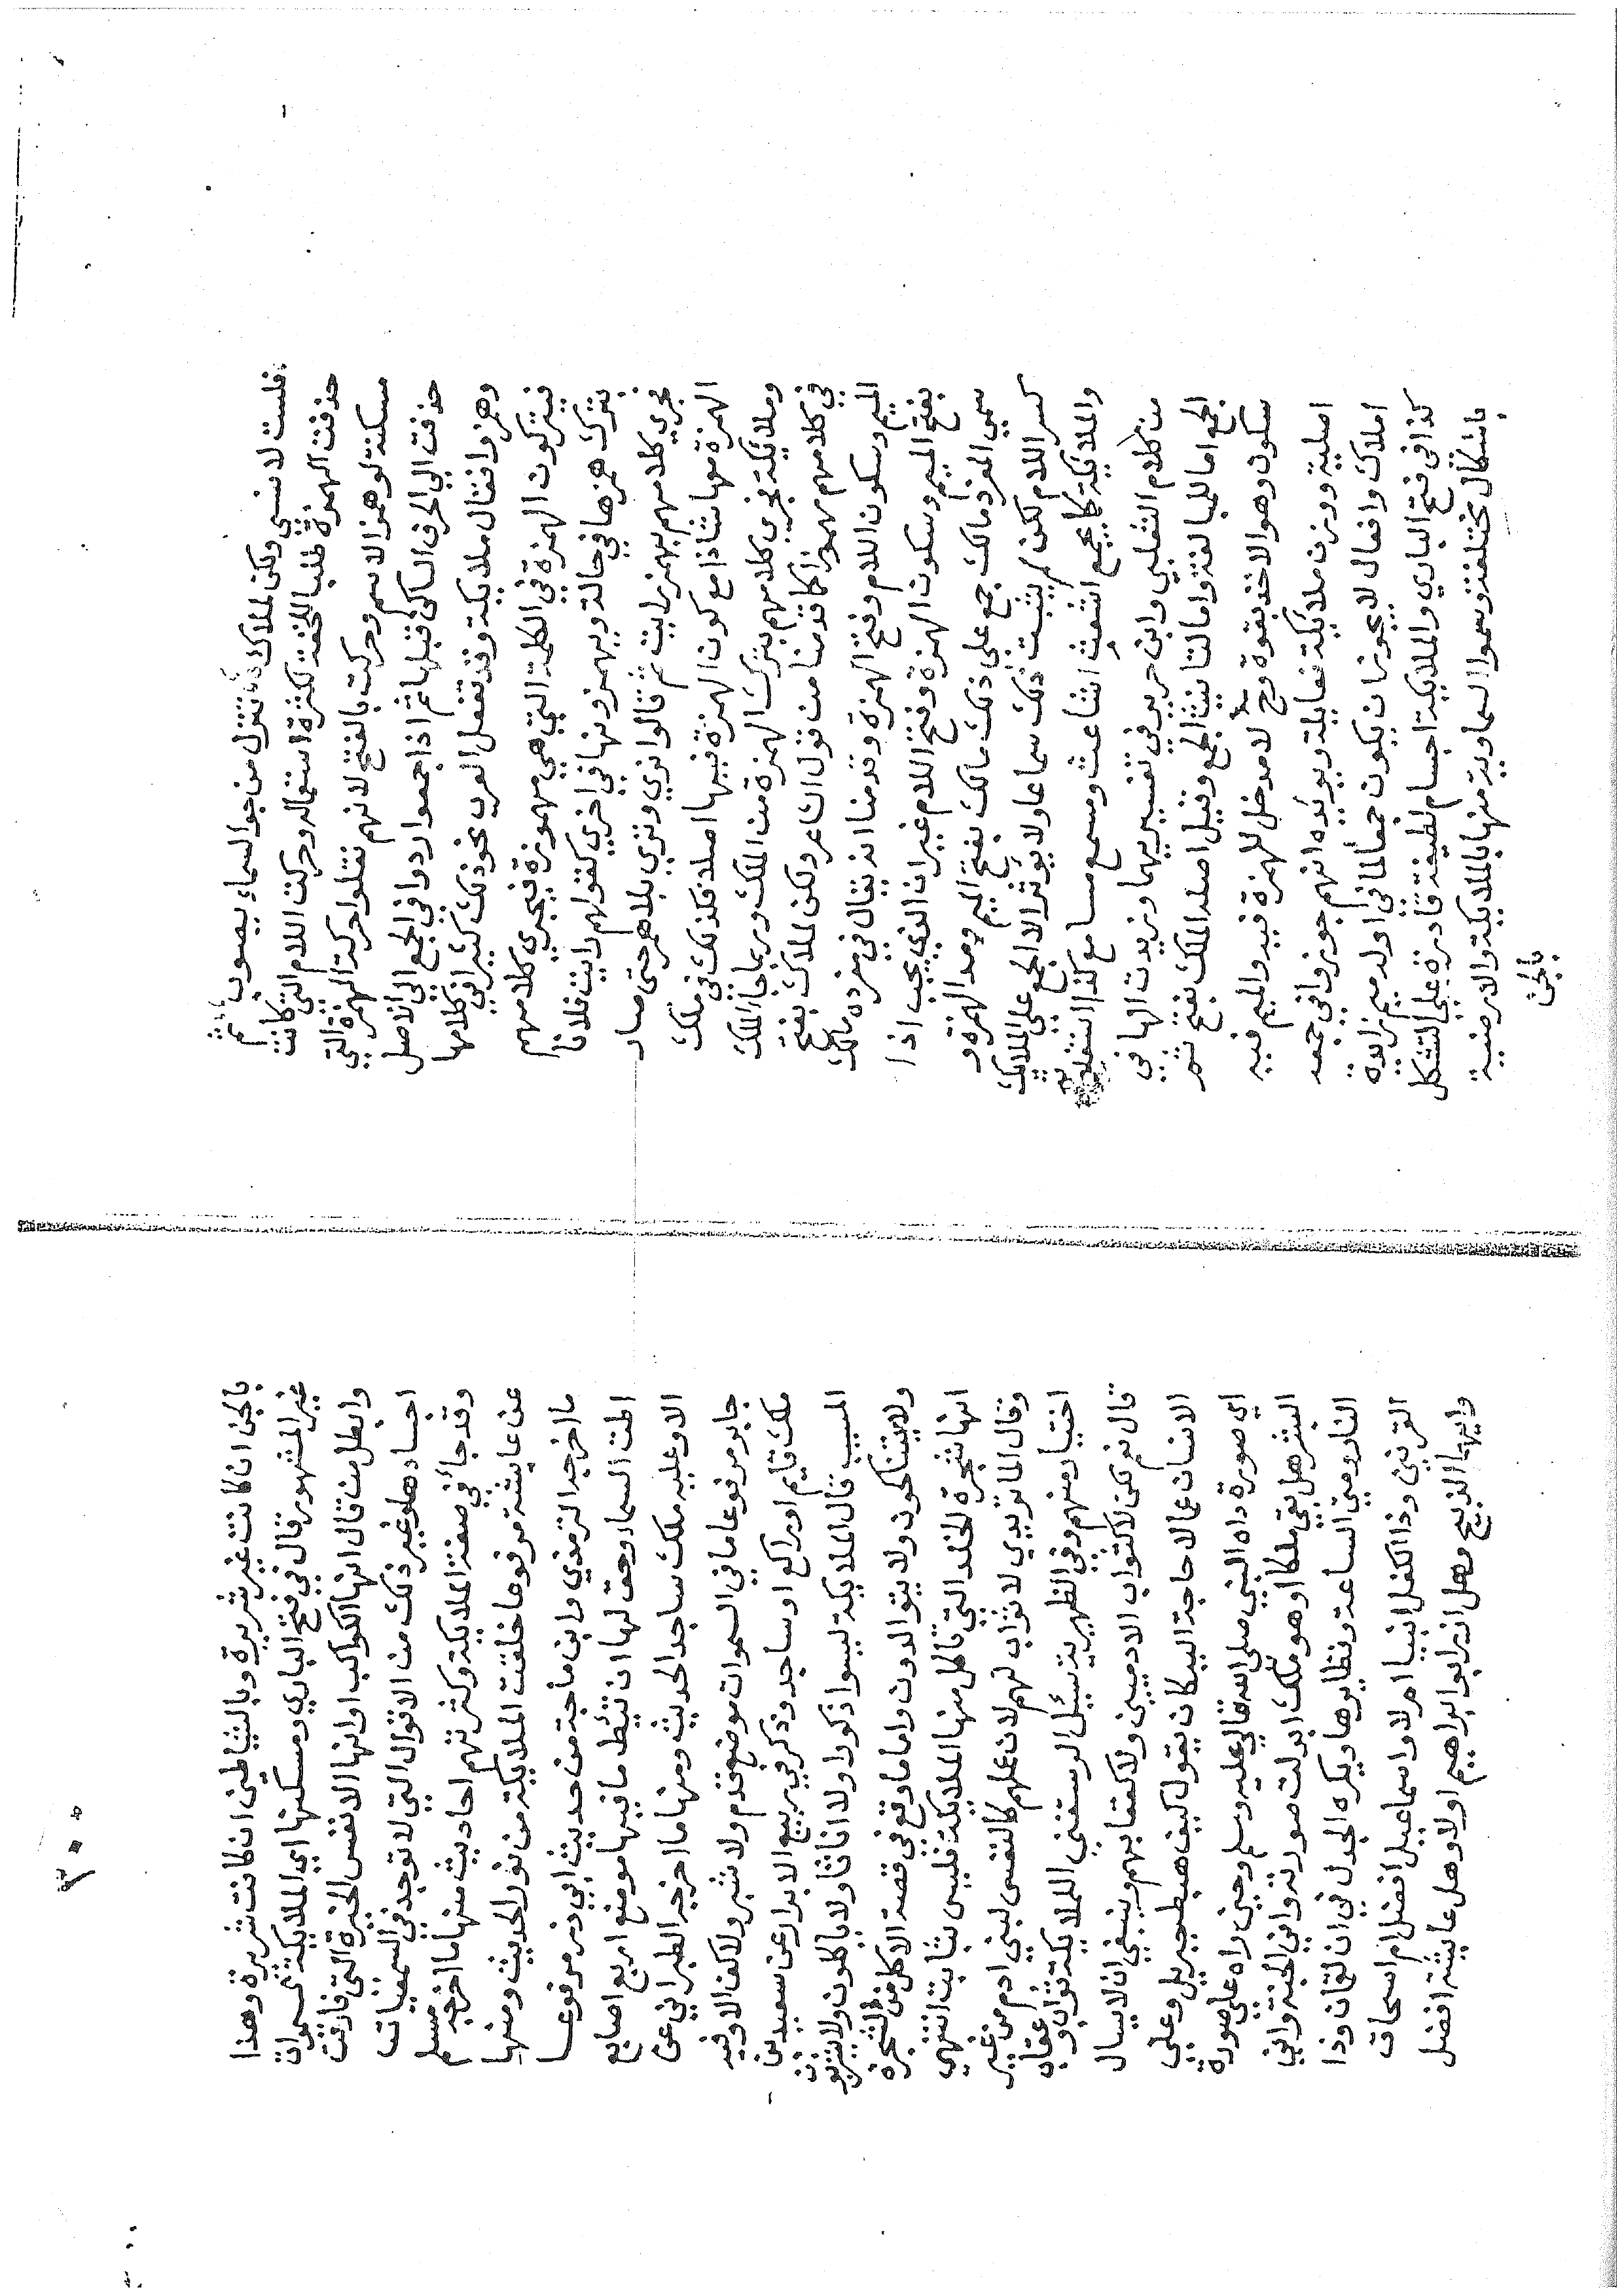 فلست لانسي ولكن لملاك تنزل من جو السماء يصوب ثم
حذفت الهمزة طلبا للخفة لكثرة استعماله وحركت اللام التي كانت
مسكنة لو همز الاسم وحركت بالفتح لانهم نقلوا حركة الهمزة التي
حذفت الي الحرف الساكن قبلها ثم اذا جمعوا ردوا في الجمع الي الاصل
وهمزوا فقال ملايكة وقد تفعل العرب نحو ذلك كثيرا في كلامها
فيتركون الهمزة في الكلمة التي هي مهموزة فيجري كلامهم
بترك همزها في حالة ويهمزونها في اخري كقولهم رايت فلانا
نجري كلامهم بهمز رايت ثم قالوا نري وتري بلا همز حتى صار
الهمزة معها شاذا مع كون الهمزة فيها اصلا فكذلك في ملك
وملائكة نجري كلامهم بترك الهمزة من الملك وربما جا الملك
في كلامهم مهموزا كما قدمنا من قول الشاعر ولكن لملاك بفتح
الميم وسكون اللام وفتح الهمزة وقدمنا انه يقال في مفرده مالك
بفتح الميم وسكون الهمزة وفتح اللام غير ان الذي يجب اذا
سمي المفرد مالك جمع علي ذلك مالك بفتح الميم ومد الهمزة و
كسر اللام لكن لم يثبت ذلك سماعا ولا يوثر الا الجمع علي الملائك
والملائكة كما يجمع اشعث اشاعث ومسمع مسامع كذا التقطته
من كلام الثعلبي وابن جرير في تفسيريهما وزيدت الها في
الجمع اما للمبالغة واما لتانيث الجمع وقيل اصله الملك بفتح ثم
سكون وهو الاخذ بقوة وح لا مدخل للهمزة فيه والميم فيه
اصلية ووزن ملايكة فعايلة ويويده انهم جوزوا في جمعه
املاك وافعال لا يجوز ان يكون جمعا لما في اوله ميم زايدة
كذا في فتح الباري والملايكة اجسام لطيفة قادرة علي التشكل
باشكال مختلفة وسموا السماوية منها بالملايكة والارضية
بالجن
٣٠٠
بالجن ان كانت غير شريرة وبالشياطين ان كانت شريرة وهذا
غير المشهور قال في فتح الباري ومسكنها اي الملايكة السموات
وابطل من قال انها الكواكب او انها الانفس الخيرة التي فارقت
اجسادها وغير ذلك من الاقوال التي لا توجد في السمعيات
وقد جا في صفة الملايكة وكثرتهم احاديث منها ما اخرجه مسلم
عن عايشة مرفوعا خلقت الملايكة من نور الحديث ومنها
ما اخرجه الترمذي وابن ماجة من حديث ابي ذر مرفوعا
اطت السماء وحق لها ان تئط ما فيها موضع اربع اصابع
الا وعليه ملك ساجد الحديث ومنها ما اخرجه الطبراني عن
جابر مرفوعا ما في السموات موضع قدم ولا شبر ولا كف الا وفيه
ملك قايم او راكع او ساجد وذكر في ربيع الابرار عن سعيد بن
المسيب قال الملايكة ليسوا ذكورا ولا اناثا ولا ياكلون ولا يشربون
ولا يتناكحون ولا يتوالدون واما ما وقع في قصة الاكل من الشجرة
انها شجرة الخلد التي تاكل منها الملايكة فليس بثابت انتهي
وقال الماتريدي لا ثواب لهم لان عملهم كالنفس لبني ادم من غير
اختيار منهم وفي الظهيرية سئيل الرستغني الملايكة ثواب وعقاب
قال نعم لكن لا كثواب الادميين ولا كعقابهم وينبغي ان لا يسال
الانسان عما لا حاجة اليه كان يقول كيف هبط جبريل وعلي
اي صورة راه النبي صلي الله تعالي عليه وسلم وحين راه علي صورة
البشر هل بقي ملكا او هو ملك ابدلت صورته واني الجنة واني
النار ومتي الساعة ونظايرها ويكره الجدل في ان لقمان وذا
القرنين وذا الكفل انبيا ام لا واسماعيل افضل ام اسحاق
وايهما الذبيح وهل ازر ابو ابراهيم او لا وهل عايشة افضل